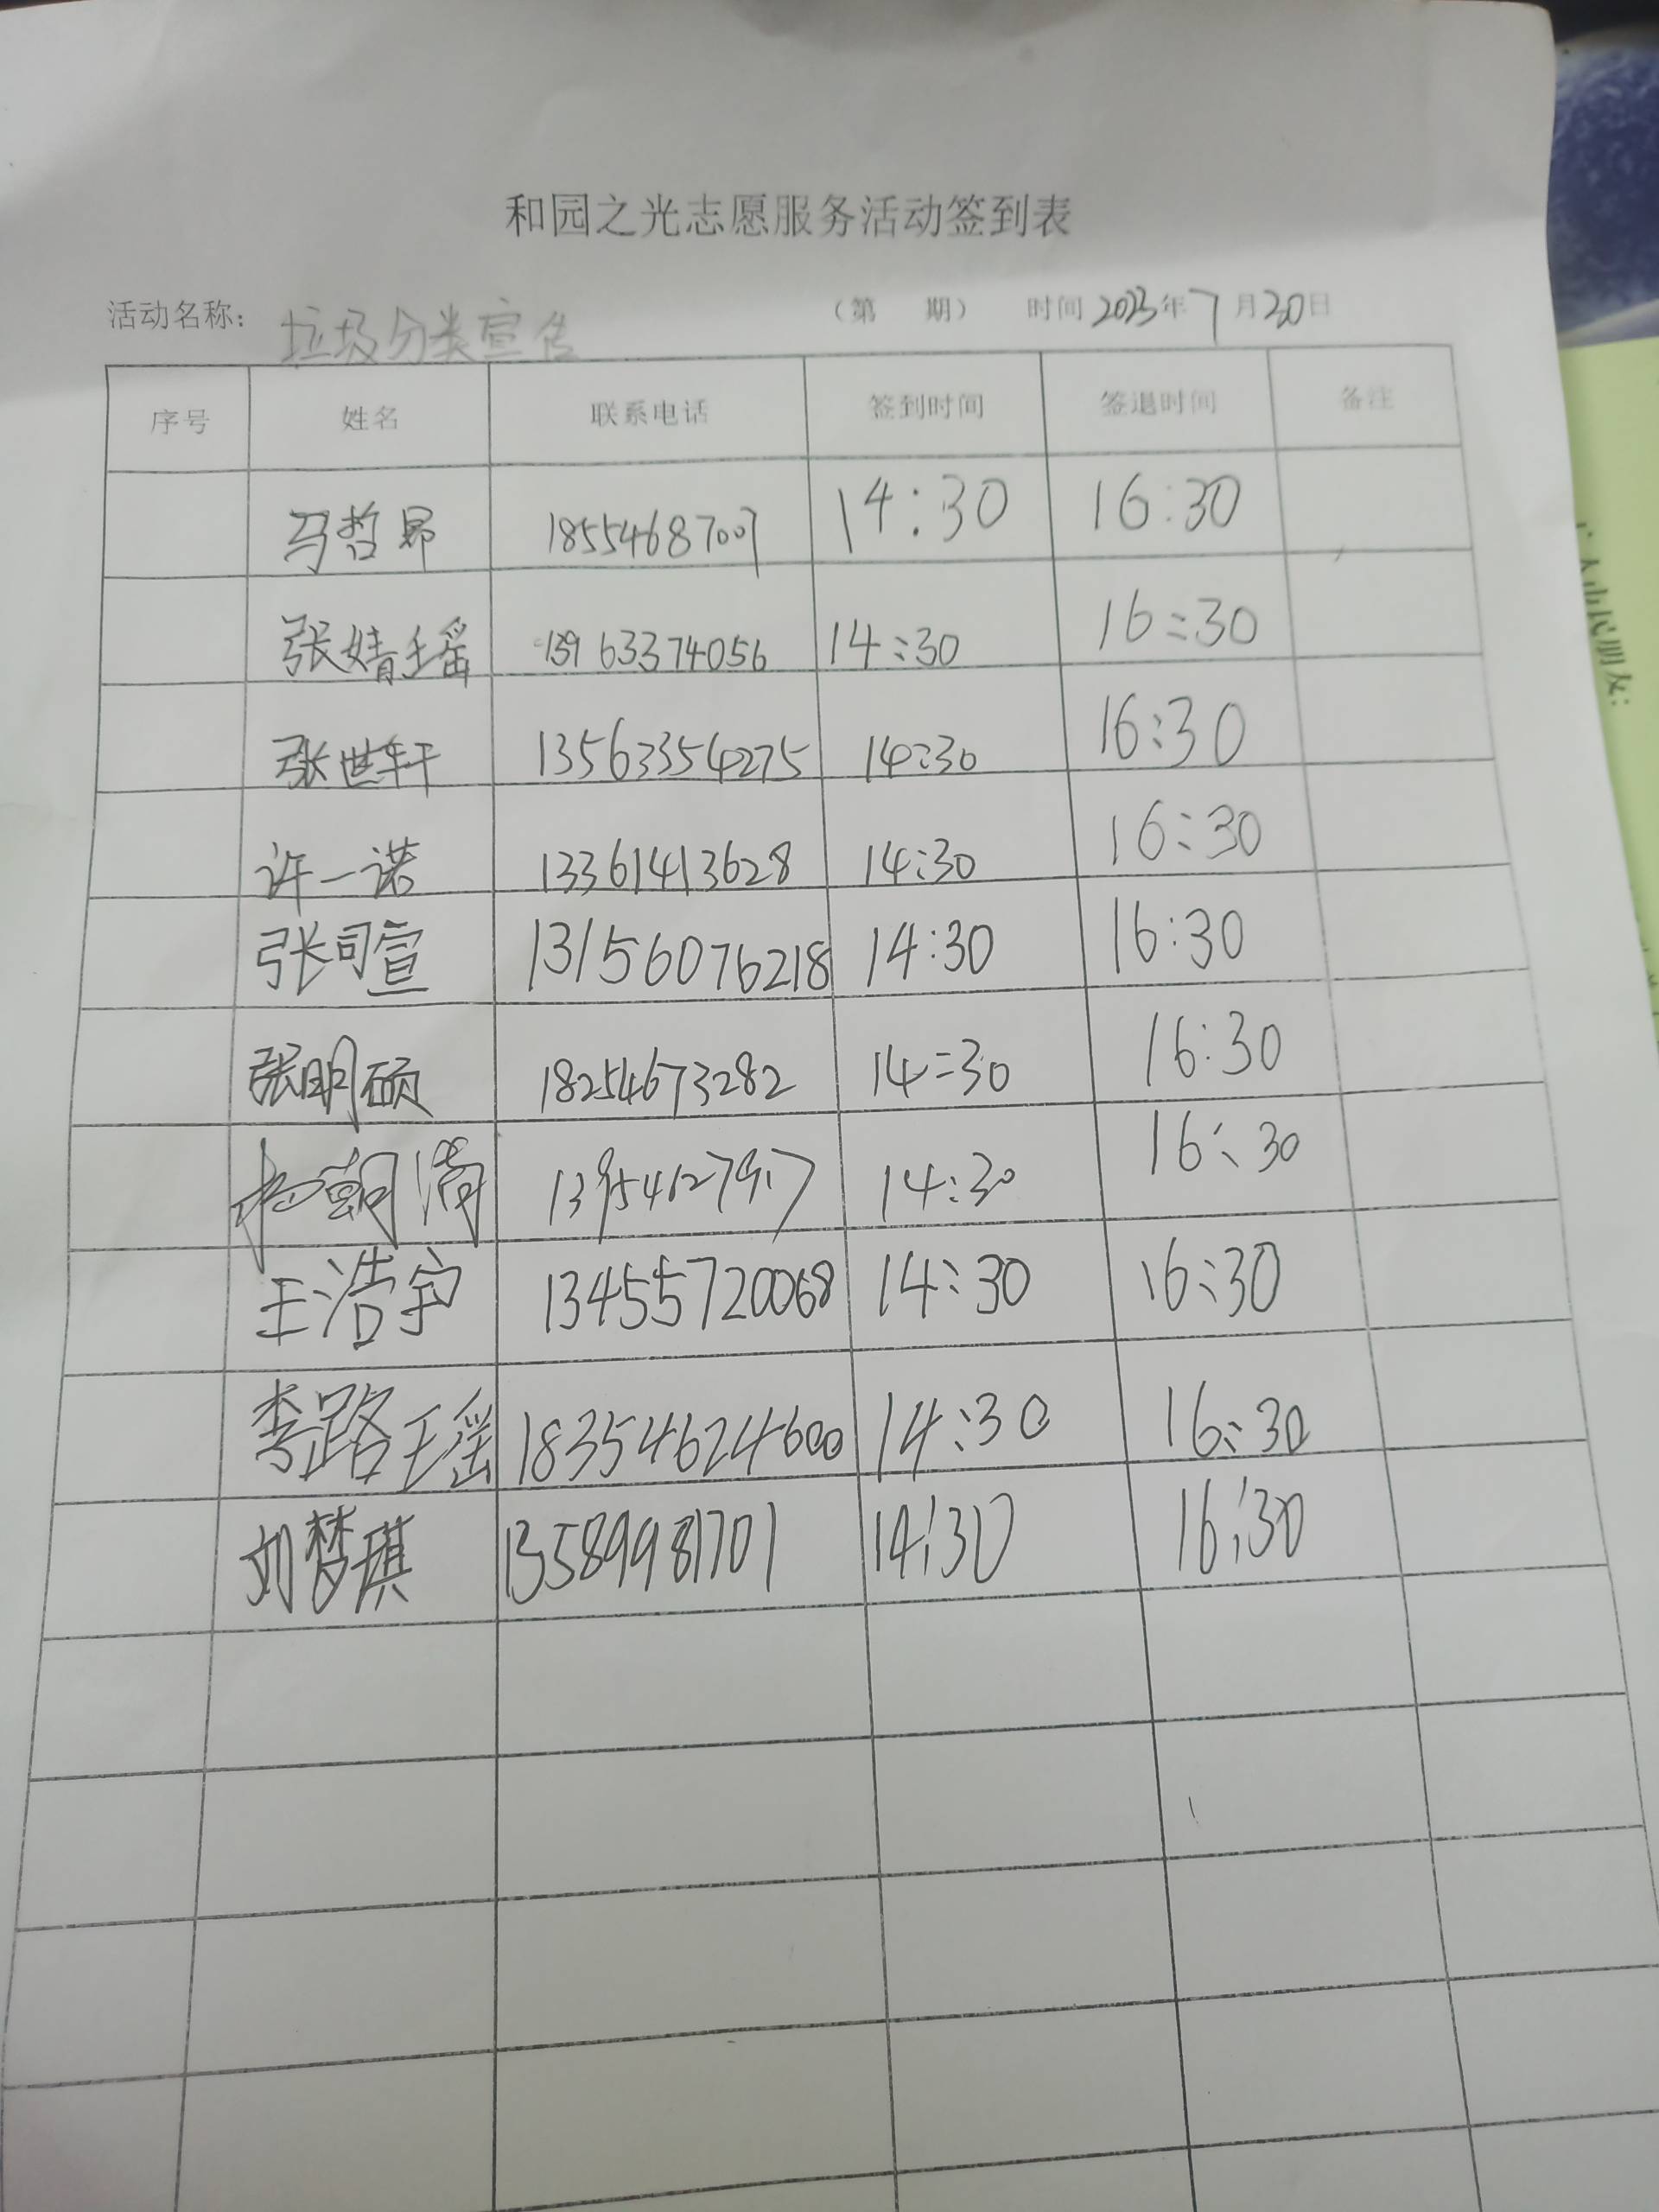 和园之光志愿服务活动签到表
活动名称： 垃圾分类宣传 （第 期） 时间 2023年7月20日
序号 姓名 联系电话 签到时间 签退时间 备注
马哲昂 18554687007 14:30 16:30
张婧瑶 13963374056 14:30 16:30
张世轩 13563354275 14:30 16:30
许一诺 13361413628 14:30 16:30
张司宣 13156076218 14:30 16:30
张明硕 18254673282 14:30 16:30
杨朝 14:30 16:30
王浩宇 13455720068 14:30 16:30
李路瑶 18354624600 14:30 16:30
刘梦琪 13589981701 14:30 16:30